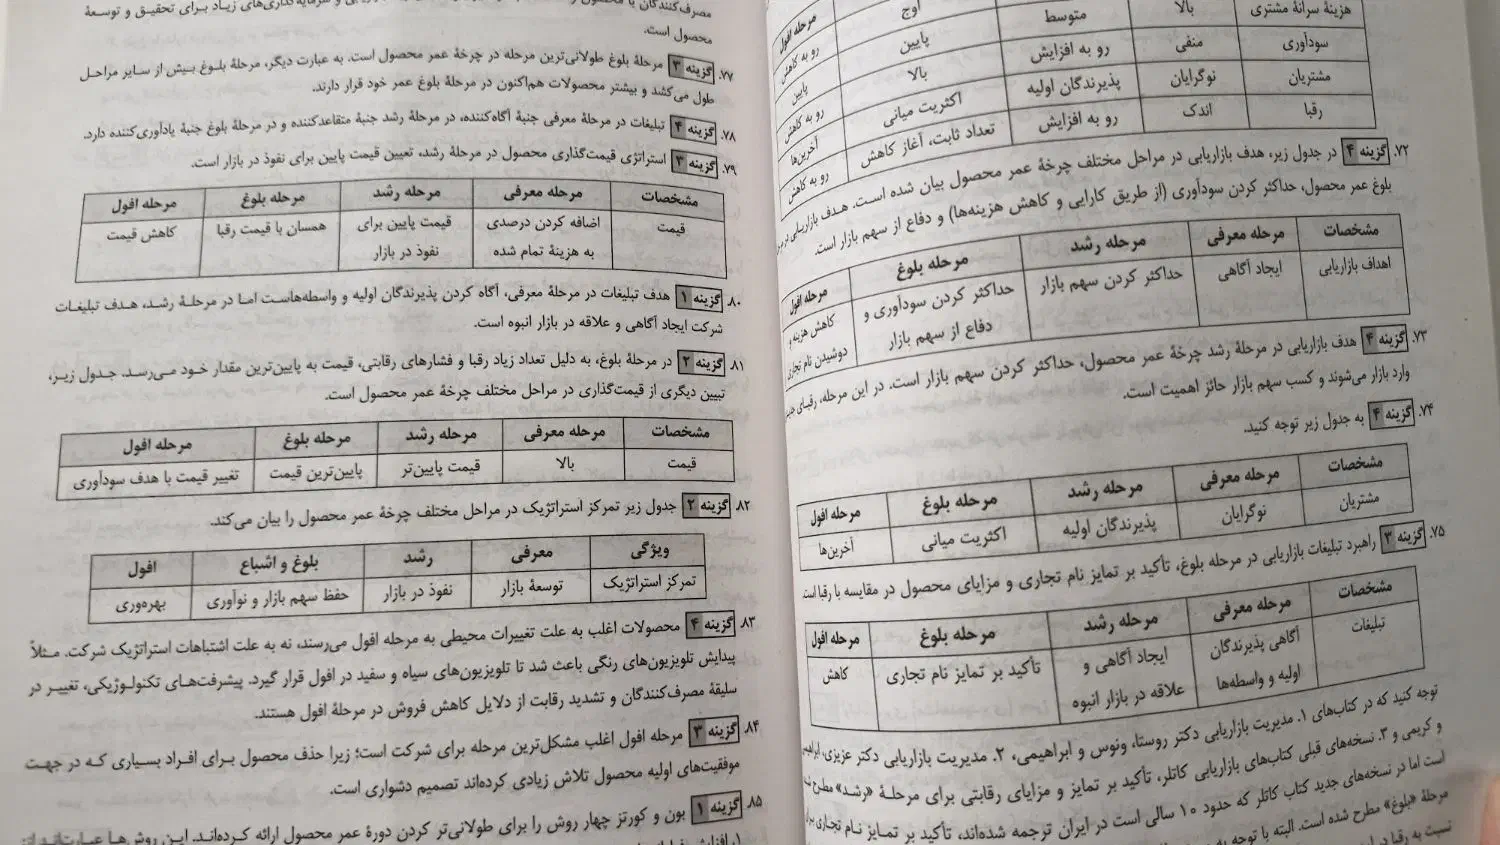 هزینهٔ سرانهٔ مشتری بالا متوسط اوج مرحله افول
سودآوری منفی رو به افزایش پایین رو به کاهش
مشتریان نوگرایان پذیرندگان اولیه بالا پایین
رقبا اندک رو به افزایش اکثریت میانی رو به کاهش
تعداد ثابت، آغاز کاهش آخرین‌ها
رو به کاهش
۷۲. گزینه ۴ در جدول زیر، هدف بازاریابی در مراحل مختلف چرخهٔ عمر محصول بیان شده است. هدف بازاریابی در
بلوغ عمر محصول، حداکثر کردن سودآوری (از طریق کارایی و کاهش هزینه‌ها) و دفاع از سهم بازار است.
مشخصات مرحله معرفی مرحله رشد مرحله بلوغ مرحله افول
اهداف بازاریابی ایجاد آگاهی حداکثر کردن سهم بازار حداکثر کردن سودآوری و کاهش هزینه و
دفاع از سهم بازار دوشیدن نام تجاری
۷۳. گزینه ۴ هدف بازاریابی در مرحلهٔ رشد چرخهٔ عمر محصول، حداکثر کردن سهم بازار است. در این مرحله، رقبای
وارد بازار می‌شوند و کسب سهم بازار حائز اهمیت است.
۷۴. گزینه ۴ به جدول زیر توجه کنید.
مشخصات مرحله معرفی مرحله رشد مرحله بلوغ مرحله افول
مشتریان نوگرایان پذیرندگان اولیه اکثریت میانی آخرین‌ها
۷۵. گزینه ۳ راهبرد تبلیغات بازاریابی در مرحله بلوغ، تأکید بر تمایز نام تجاری و مزایای محصول در مقایسه با رقبا است.
مشخصات مرحله معرفی مرحله رشد مرحله بلوغ مرحله افول
تبلیغات آگاهی پذیرندگان ایجاد آگاهی و تأکید بر تمایز نام تجاری کاهش
اولیه و واسطه‌ها علاقه در بازار انبوه
توجه کنید که در کتاب‌های ۱. مدیریت بازاریابی دکتر روستا، ونوس و ابراهیمی، ۲. مدیریت بازاریابی دکتر عزیزی،
و کریمی و ۳. نسخه‌های قبلی کتاب‌های بازاریابی کاتلر، تأکید بر تمایز و مزایای رقابتی برای مرحلهٔ «رشد» مطرح
است اما در نسخه‌های جدید کتاب کاتلر که حدود ۱۰ سالی است در ایران ترجمه شده‌اند، تأکید بر تمایز نام تجاری
مرحلهٔ «بلوغ» مطرح شده است. البته با توجه به
نسبت به رقبا در
مصرف‌کنندگان
و سرمایه‌گذاری‌های زیاد برای تحقیق و توسعهٔ
محصول است.
۷۷. گزینه ۳ مرحلهٔ بلوغ طولانی‌ترین مرحله در چرخهٔ عمر محصول است. به عبارت دیگر، مرحلهٔ بلوغ بیش از سایر مراحل
طول می‌کشد و بیشتر محصولات هم‌اکنون در مرحلهٔ بلوغ عمر خود قرار دارند.
۷۸. گزینه ۴ تبلیغات در مرحلهٔ معرفی جنبهٔ آگاه‌کننده، در مرحلهٔ رشد جنبهٔ متقاعدکننده و در مرحلهٔ بلوغ جنبهٔ یادآوری‌کننده دارد.
۷۹. گزینه ۳ استراتژی قیمت‌گذاری محصول در مرحلهٔ رشد، تعیین قیمت پایین برای نفوذ در بازار است.
مشخصات مرحله معرفی مرحله رشد مرحله بلوغ مرحله افول
قیمت اضافه کردن درصدی قیمت پایین برای همسان با قیمت رقبا کاهش قیمت
به هزینهٔ تمام شده نفوذ در بازار
۸۰. گزینه ۱ هدف تبلیغات در مرحلهٔ معرفی، آگاه کردن پذیرندگان اولیه و واسطه‌هاست اما در مرحلهٔ رشد، هدف تبلیغات
شرکت ایجاد آگاهی و علاقه در بازار انبوه است.
۸۱. گزینه ۲ در مرحلهٔ بلوغ، به دلیل تعداد زیاد رقبا و فشارهای رقابتی، قیمت به پایین‌ترین مقدار خود می‌رسد. جدول زیر،
تبیین دیگری از قیمت‌گذاری در مراحل مختلف چرخهٔ عمر محصول است.
مشخصات مرحله معرفی مرحله رشد مرحله بلوغ مرحله افول
قیمت بالا قیمت پایین‌تر پایین‌ترین قیمت تغییر قیمت با هدف سودآوری
۸۲. گزینه ۲ جدول زیر تمرکز استراتژیک در مراحل مختلف چرخهٔ عمر محصول را بیان می‌کند.
ویژگی معرفی رشد بلوغ و اشباع افول
تمرکز استراتژیک توسعهٔ بازار نفوذ در بازار حفظ سهم بازار و نوآوری بهره‌وری
۸۳. گزینه ۴ محصولات اغلب به علت تغییرات محیطی به مرحله افول می‌رسند، نه به علت اشتباهات استراتژیک شرکت. مثلاً
پیدایش تلویزیون‌های رنگی باعث شد تا تلویزیون‌های سیاه و سفید در افول قرار گیرد. پیشرفت‌های تکنولوژیکی، تغییر در
سلیقهٔ مصرف‌کنندگان و تشدید رقابت از دلایل کاهش فروش در مرحلهٔ افول هستند.
۸۴. گزینه ۳ مرحله افول اغلب مشکل‌ترین مرحله برای شرکت است؛ زیرا حذف محصول برای افراد بسیاری که در جهت
موفقیت‌های اولیه محصول تلاش زیادی کرده‌اند تصمیم دشواری است.
۸۵. گزینه ۱ بون و کورتز چهار روش را برای طولانی‌تر کردن دورهٔ عمر محصول ارائه کرده‌اند. این روش‌ها عبارت‌اند از: